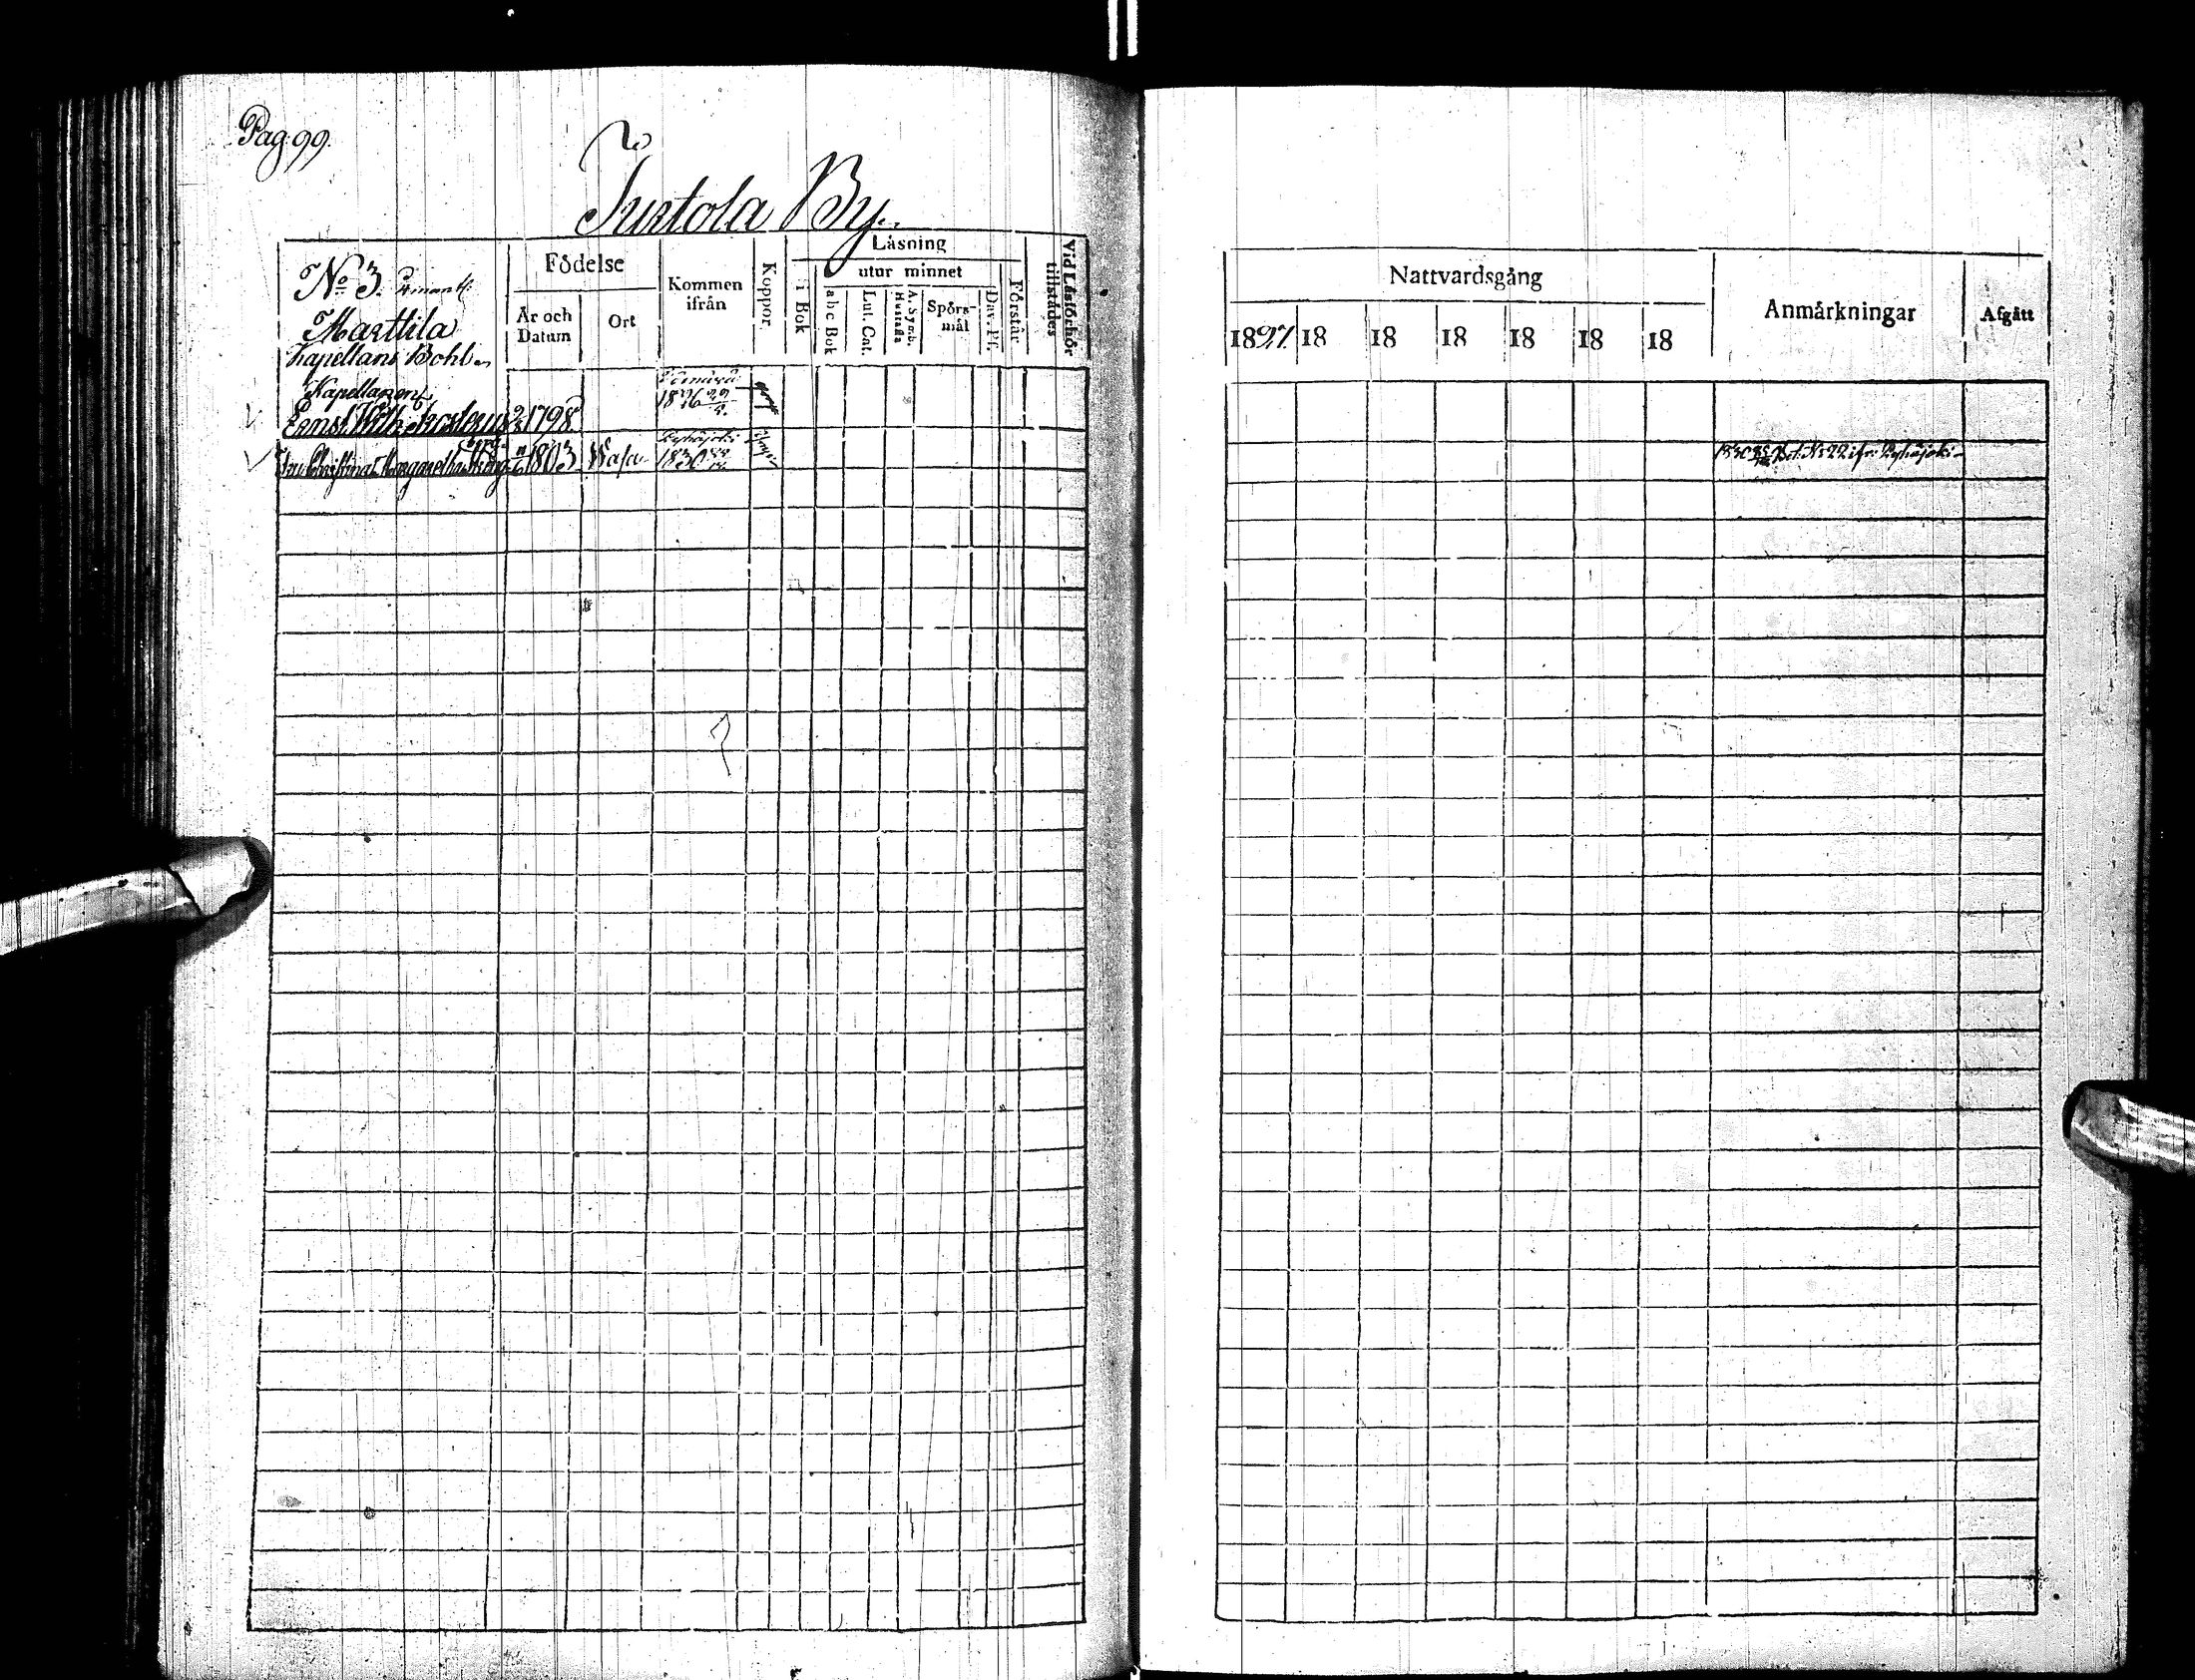 Pag. 99.
Turtola By.
No 3.
Marttila
Kapellans Bohl.
Födelse
År och Datum
Ort
Kommen ifrån
Koppor
Läsning
i Bok
utur minnet
a b c Bok
Lut. Cat.
A. Symb. Hustafla
Spörsmål
Dav. Ps.
Förstår
Vid Läsförhör tillstådes
Kapellanen
Ernst Wilh. 1798
1826
Christina Margaretha 1803 Wasa
Pyhäjoki
1830
Nattvardsgång
1827 18 18 18 18 18 18
Anmärkningar
Afgått
1830 Bet. No 22 ifr. Pyhäjoki